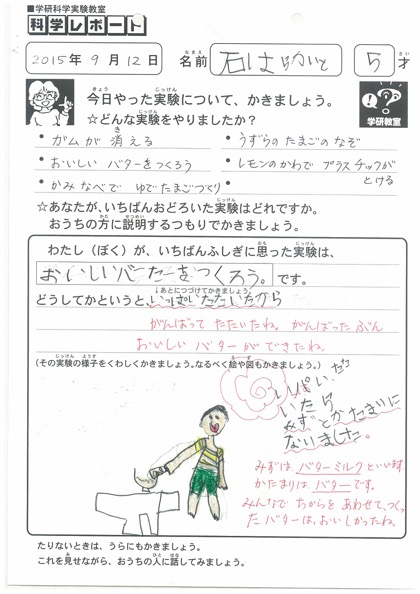 ■学研科学実験教室
科学レポート
2015年 9月 12日 名前 石はらかいと 5才
今日やった実験について、かきましょう。
☆どんな実験をやりましたか?
学研教室
・ガムが消える ・うずらのたまごのなぞ
・おいしいバターをつくろう ・レモンのかわでプラスチックがとける
・かみなべで ゆでたまごづくり ・
☆あなたが、いちばんおどろいた実験はどれですか。
おうちの方に説明するつもりでかきましょう。
わたし(ぼく)が、いちばんふしぎに思った実験は、
おいしいバターをつくろう。です。
↓あとにつづけてかきましょう
どうしてかというと、いっぱいたたいたから
がんばって たたいたね。がんばった ぶん
おいしい バターが できたね。
(その実験の様子をくわしくかきましょう。なるべく絵や図もかきましょう。)
いっぱい、たた
いたら
みずとかたまりに
なりました。
みずは、バターミルク といいます。
かたまりは バター です。
みんなで ちからを あわせて、つくっ
た バターは、おいしかったね。
たりないときは、うらにもかきましょう。
これを見せながら、おうちの人に話してみましょう。